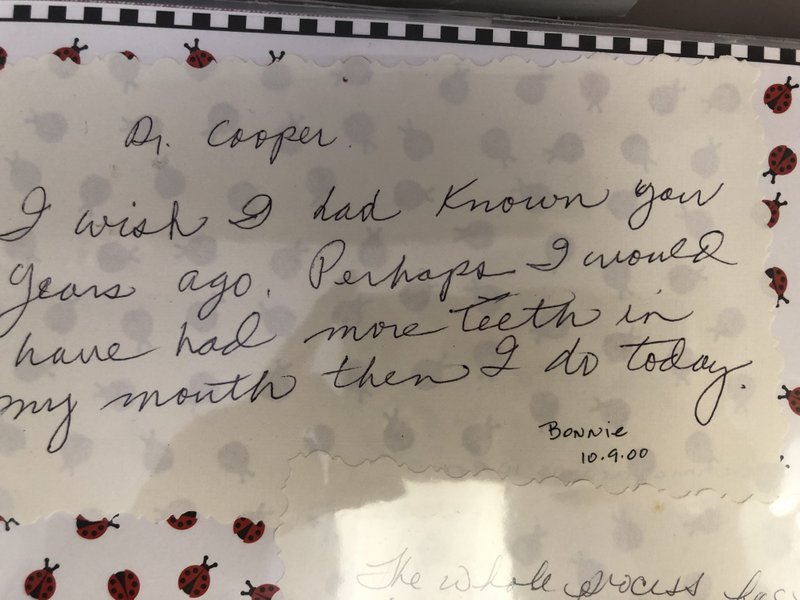 Dr. Cooper.
I wish I had known you
years ago. Perhaps I would
have had more teeth in
my mouth then I do today.
Bonnie
10.9.00
The whole process has